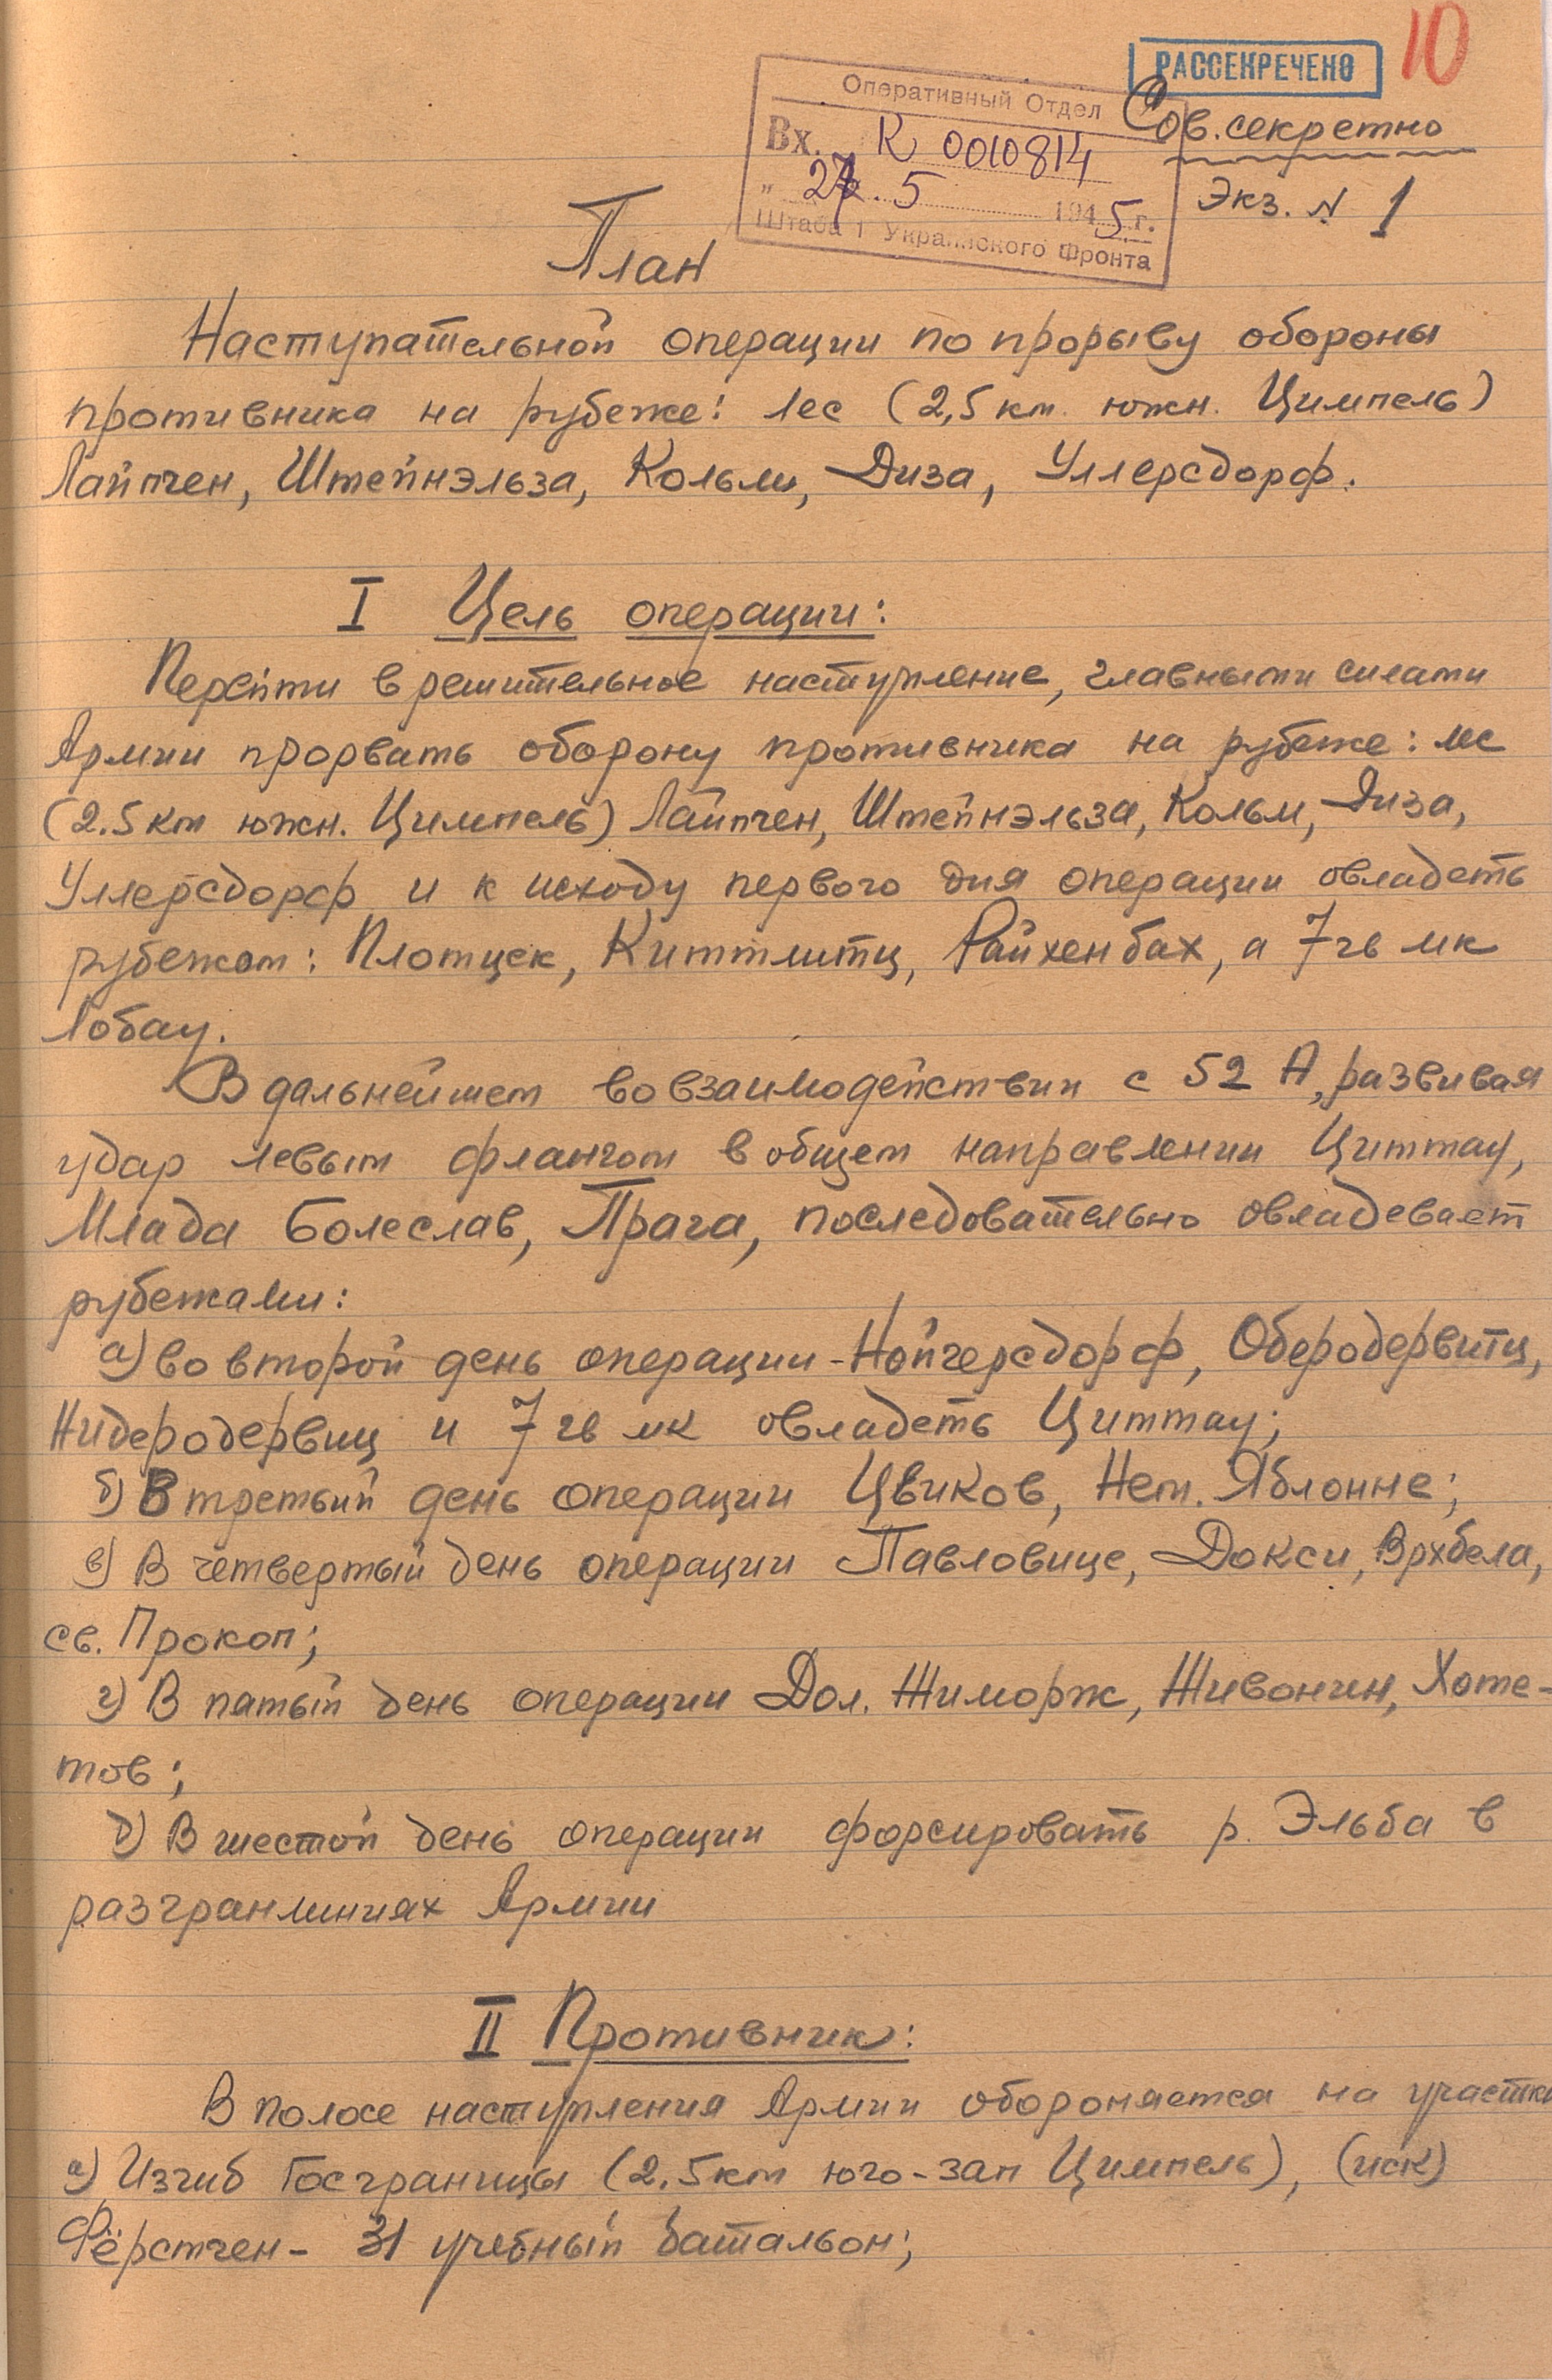 10
РАССЕКРЕЧЕНО
Оперативный Отдел
Сов. секретно
Вх. К 0010814
Экз. № 1
" 27. 5 1945 г.
Штаба 1 Украинского Фронта
План
Наступательной операции по прорыву обороны
противника на рубеже: лес (2,5 км. южн. Цимпель)
Лайпчен, Штейнэльза, Кольм, Диза, Уллерсдорф.
I Цель операции:
Перейти в решительное наступление, главными силами
Армии прорвать оборону противника на рубеже: лес
(2.5 км южн. Цимпель) Лайпчен, Штейнэльза, Кольм, Диза,
Уллерсдорф и к исходу первого дня операции овладеть
рубежом: Плотцек, Киттлитц, Райхенбах, а 7 гв мк
Лобау.
В дальнейшем во взаимодействии с 52 А, развивая
удар левым флангом в общем направлении Циттау,
Млада Болеслав, Прага, последовательно овладевает
рубежами:
а) во второй день операции - Нойгерсдорф, Оберодервитц,
Нидеродервиц и 7 гв мк овладеть Циттау;
б) В третьий день операции Цвиков, Нем. Яблонне;
в) В четвертый день операции Павловице, Докси, Врхбела,
св. Прокоп;
г) В пятый день операции Дол. Жиморж, Живонин, Хоте-
тов;
д) В шестой день операции форсировать р. Эльба в
разгранлиниях Армии
II Противник:
В полосе наступления Армии обороняется на участке
а) Изгиб Госграницы (2.5 км юго-зап Цимпель), (иск)
Фёрстчен - 31 учебный батальон;